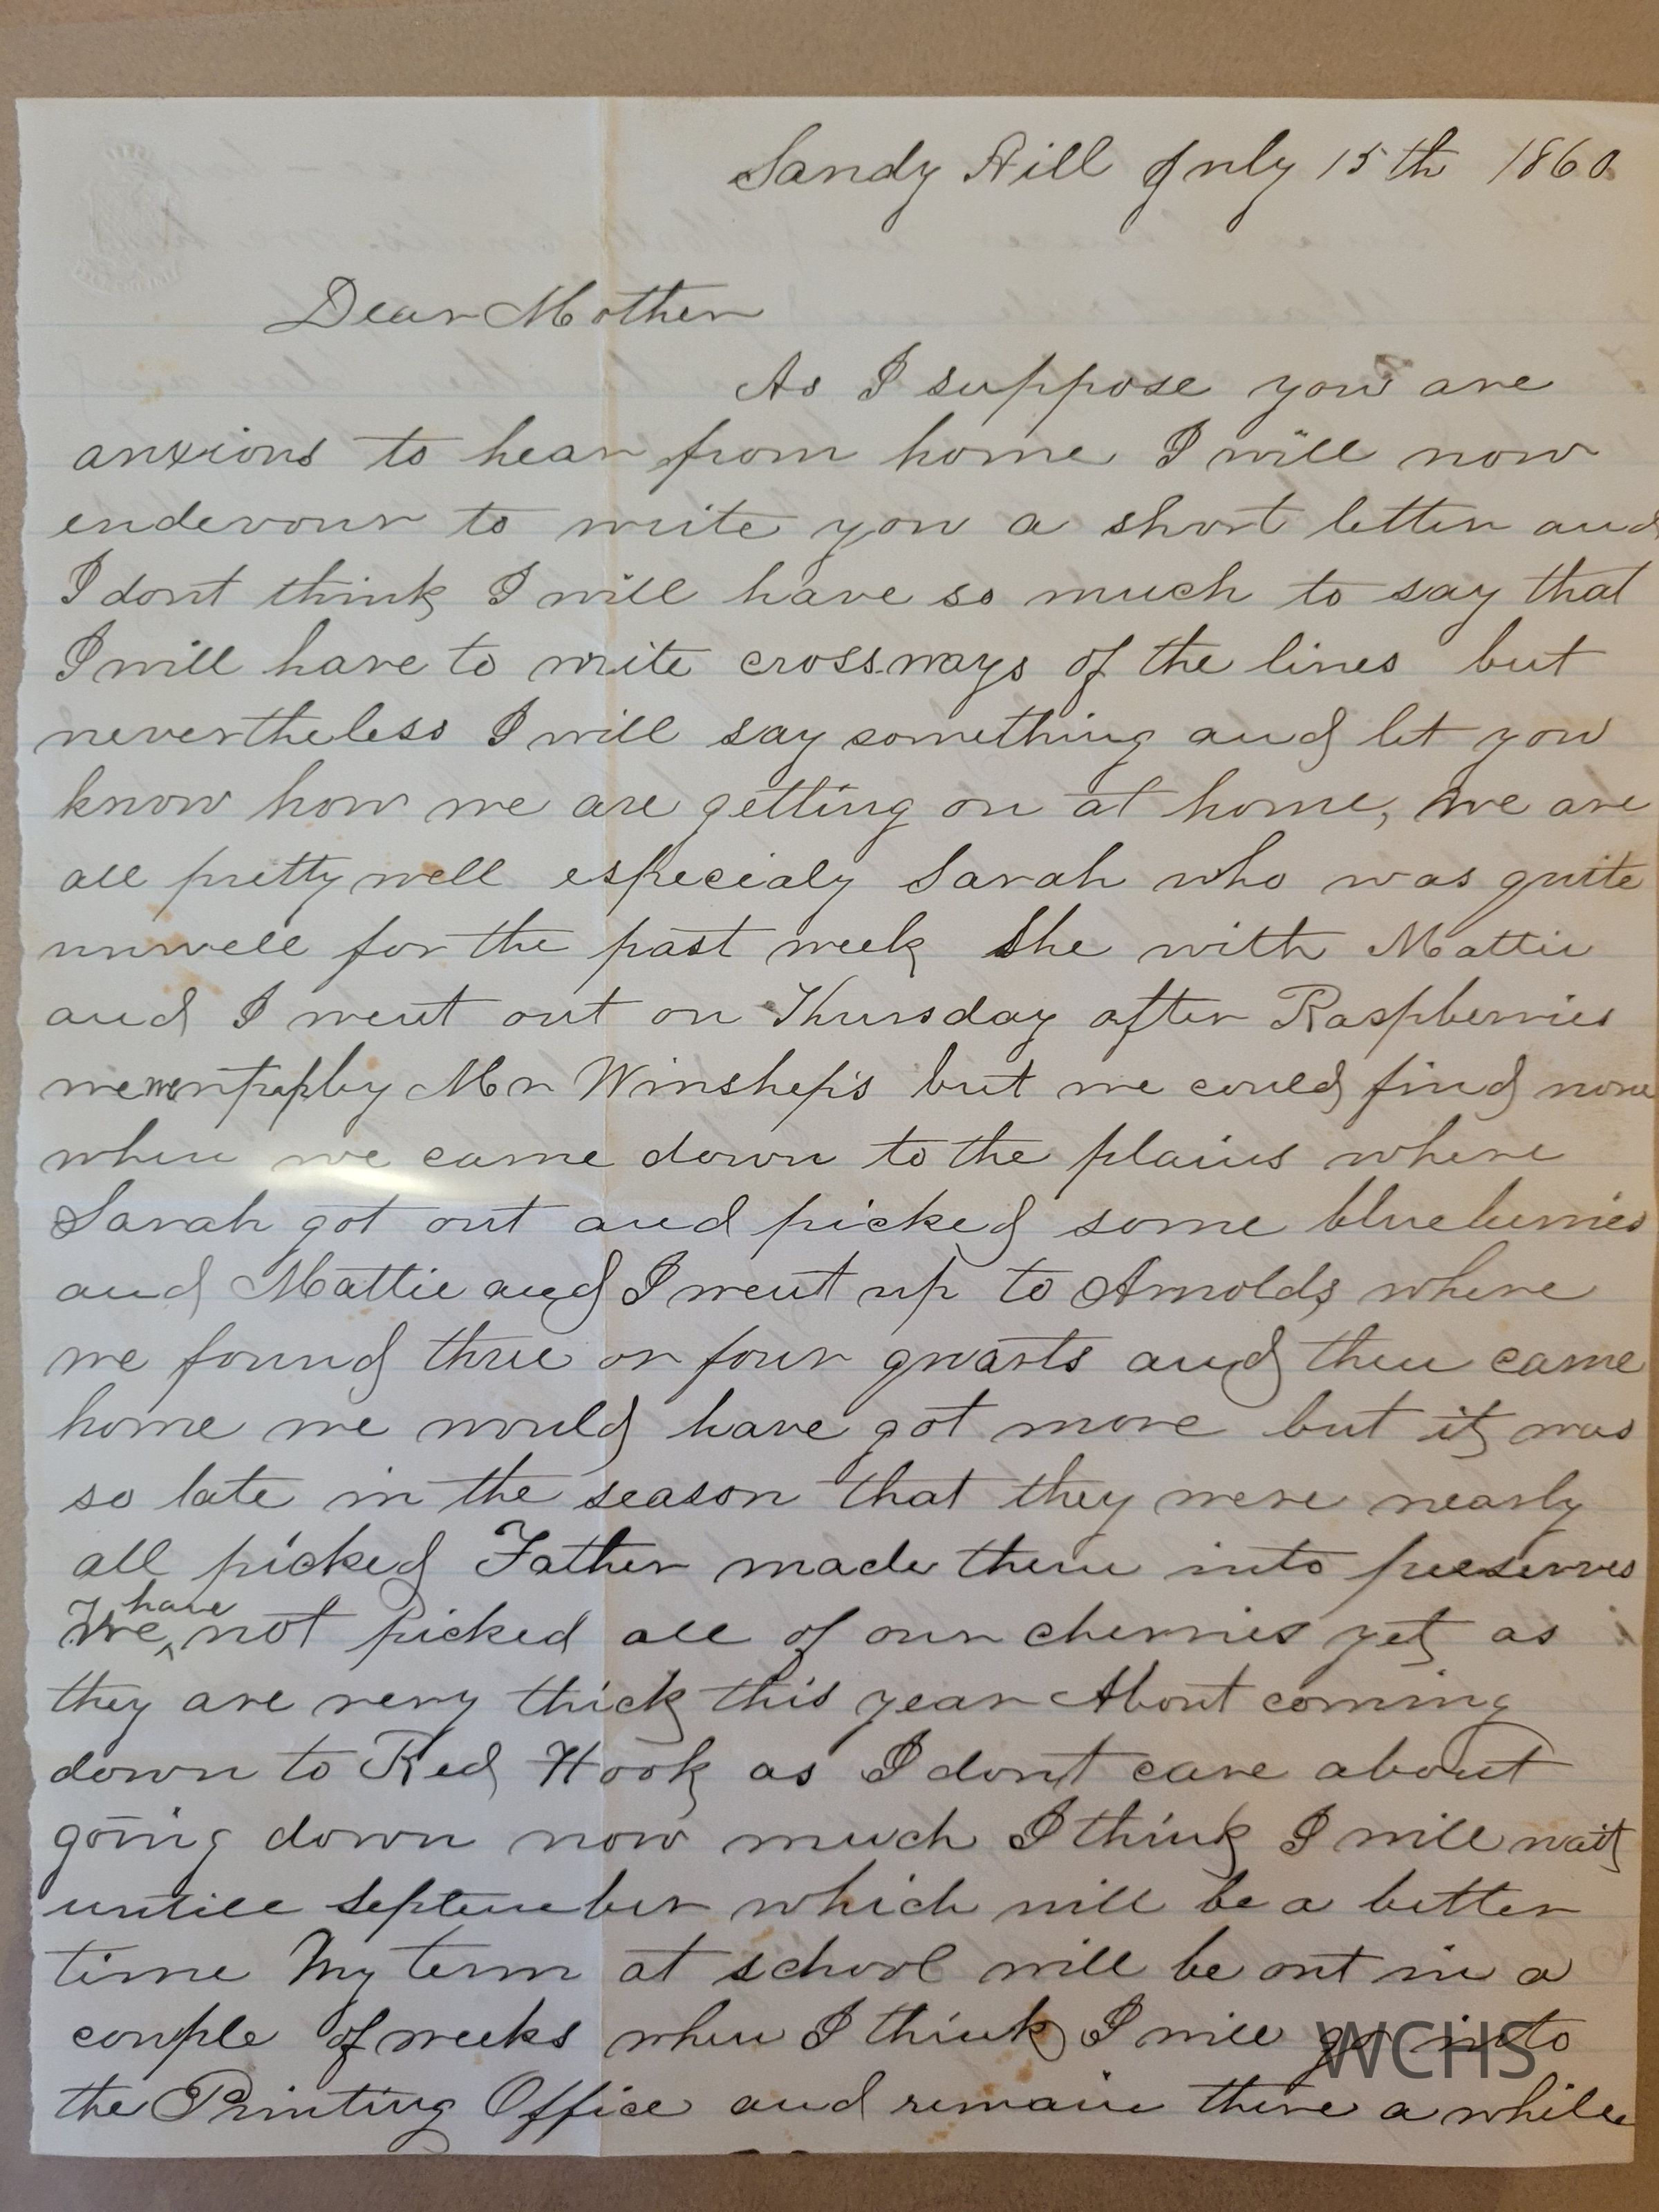 Sandy Hill July 15th 1860
Dear Mother
As I suppose you are
anxious to hear from home I will now
endevour to write you a short letter and
I dont think I will have so much to say that
I will have to write crossways of the lines but
nevertheless I will say something and let you
know how we are getting on at home, We are
all pretty well especialy Sarah who was quite
unwell for the past week She with Mattie
and I went out on Thursday after Raspberries
we went up by Mr Winship's but we could find none
when we came down to the plains where
Sarah got out and picked some blueberries
and Mattie and I went up to Arnolds where
we found three or four quarts and then came
home we would have got more but it was
so late in the season that they were nearly
all picked Father made them into preserves
We have not picked all of our cherries yet as
they are very thick this year About coming
down to Red Hook as I dont care about
going down now much I think I will wait
untill September which will be a better
time My term at school will be out in a
couple of weeks when I think I will go into
the Printing Office and remain there a while
WCHS